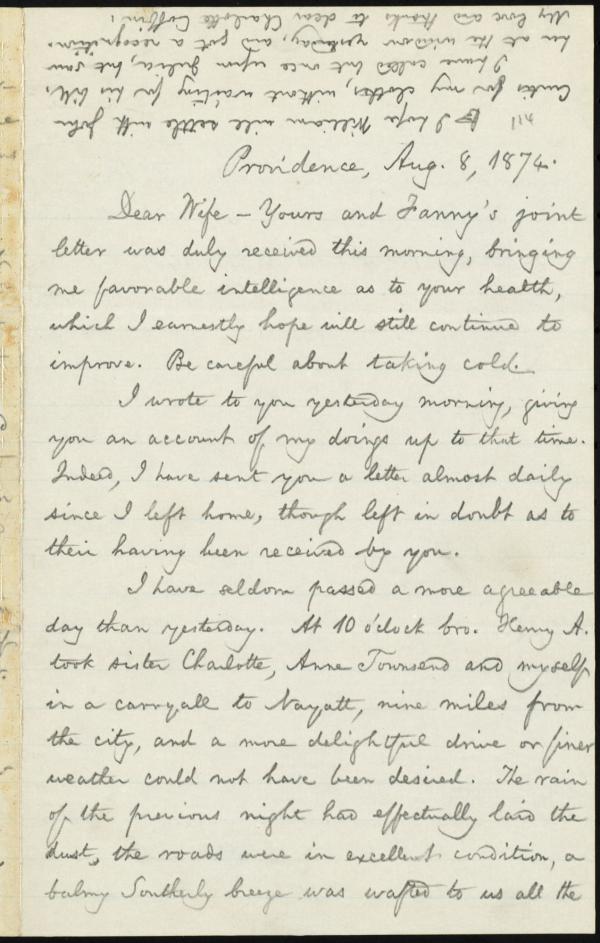 I hope William will settle with John
Curtis for my clothes, without waiting for his bill.
I have called but once upon Julia, but saw
her at the window yesterday, and got a recognition.
My love and thanks to dear Charlotte Coffin.
Providence, Aug. 8, 1874.
Dear Wife – Yours and Fanny's joint
letter was duly received this morning, bringing
me favorable intelligence as to your health,
which I earnestly hope will still continue to
improve. Be careful about taking cold.
I wrote to you yesterday morning, giving
you an account of my doings up to that time.
Indeed, I have sent you a letter almost daily
since I left home, though left in doubt as to
their having been received by you.
I have seldom passed a more agreeable
day than yesterday. At 10 o'clock bro. Henry A.
took sister Charlotte, Anne Townsend and myself
in a carryall to Nayatt, nine miles from
the city, and a more delightful drive or finer
weather could not have been desired. The rain
of the previous night had effectually laid the
dust, the roads were in excellent condition, a
balmy Southerly breeze was wafted to us all the